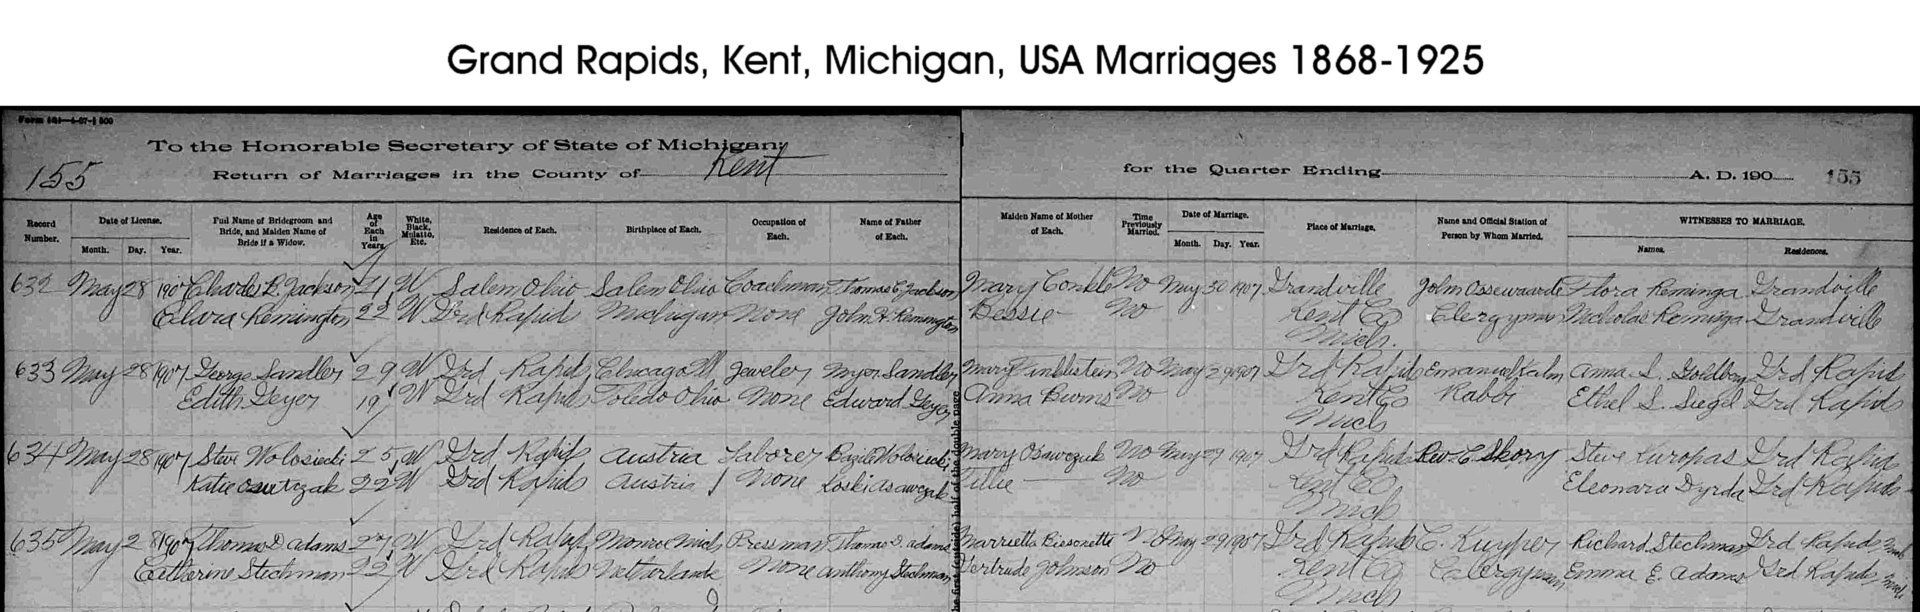 Grand Rapids, Kent, Michigan, USA Marriages 1868-1925
To the Honorable Secretary of State of Michigan:
155 Return of Marriages in the County of Kent
for the Quarter Ending A. D. 190 155
Record Number. Date of License. Month. Day. Year. Full Name of Bridegroom and Bride, and Maiden Name of Bride if a Widow. Age of Each in Years. White, Black, Mulatto, Etc. Residence of Each. Birthplace of Each. Occupation of Each. Name of Father of Each. Maiden Name of Mother of Each. Time Previously Married. Date of Marriage. Month. Day. Year. Place of Marriage. Name and Official Station of Person by Whom Married. WITNESSES TO MARRIAGE. Names. Residences.
632 May 28 1907 Charles L. Jackson 21 W Salem Ohio Salem Ohio Coachman Thomas C. Jackson Mary Conkle No May 30 1907 Grandville John Ossewaarde Flora Reminga Grandville
Clara Remington 22 W Grd Rapids Michigan None John H. Remington Bessie No Kent Co Clergyman Nicholas Reminga Grandville
Mich.
633 May 28 1907 George Sandler 29 W Grd Rapids Chicago Ill Jeweler Myer Sandler Mary No May 29 1907 Grd Rapids Emanuel Kahn Anna L. Goldberg Grd Rapids
Edith Geyer 19 W Grd Rapids Toledo Ohio None Edward Geyer Anna Burns No Kent Co Rabbi Ethel L. Siegel Grd Rapids
Mich
634 May 28 1907 Steve Wolosiecki 25 W Grd Rapids Austria Laborer Wolosiecki Mary Osawczuk No May 29 1907 Grd Rapids Rev. C Skory Steve Kuropas Grd Rapids
Katie 22 W Grd Rapids Austria None Tillie No Kent Co Eleonara Dyrda Grd Rapids
Mich
635 May 28 1907 Thomas D. Adams 27 W Grd Rapids Monroe Mich Pressman Thomas D. Adams Marrietta Biesonette No May 29 1907 Grd Rapids C. Kuyper Richard Stechman Grd Rapids Mich
Catherine Stechman 22 W Grd Rapids Netherlands None Anthony Stechman Gertrude Johnson No Kent Co Clergyman Emma E. Adams Grd Rapids Mich
Mich